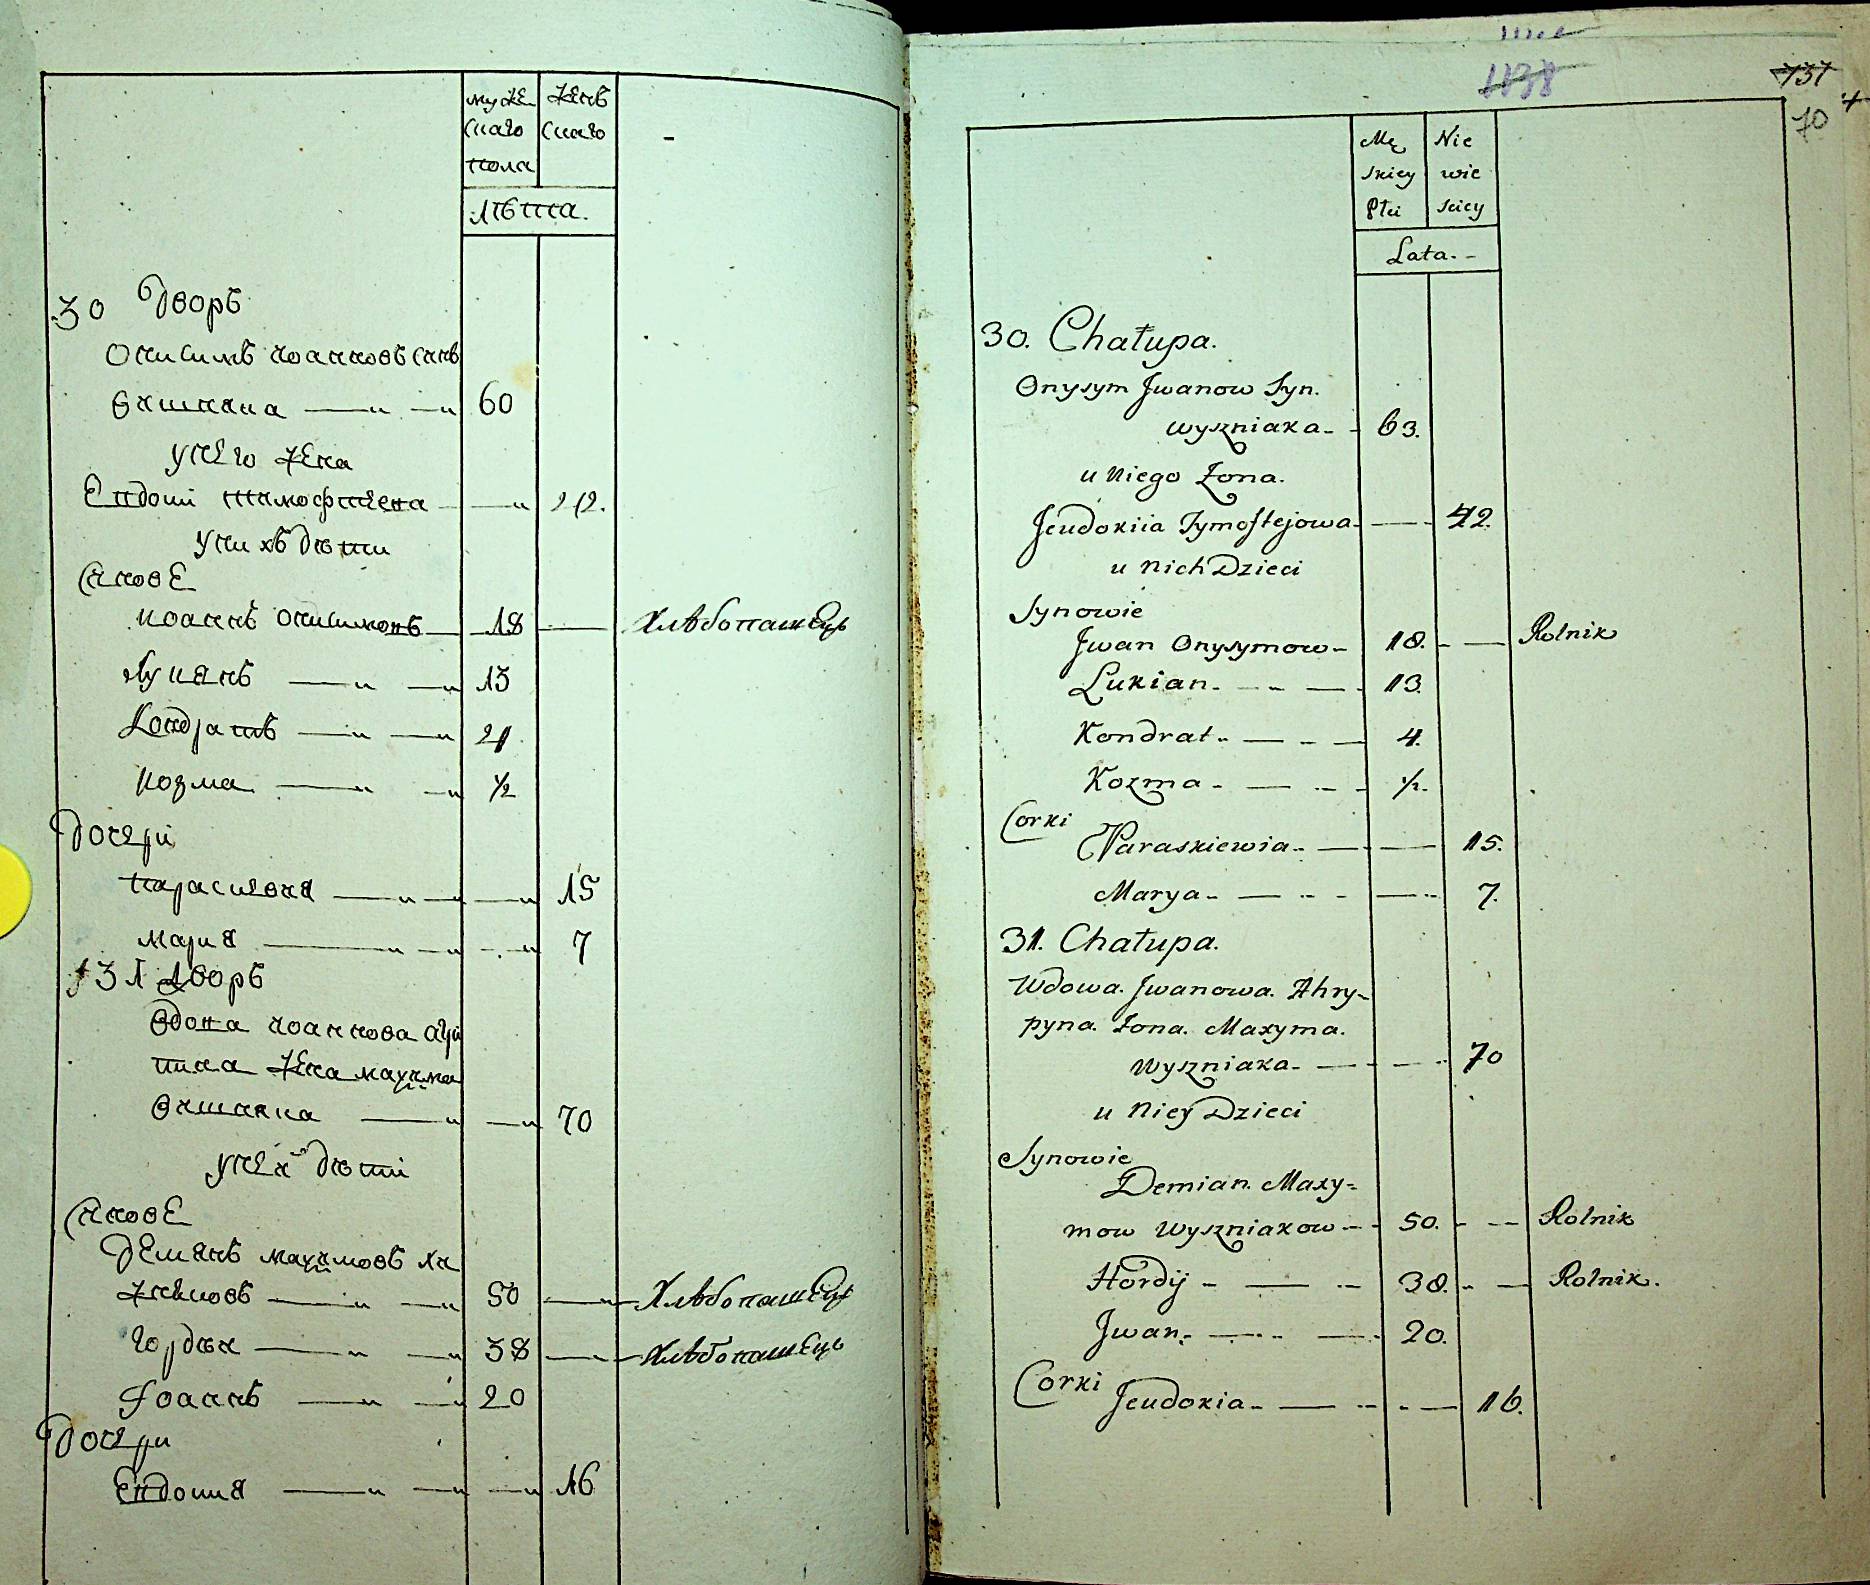 муже
скаго
пола
женъ
скаго
лѣта.
30 Дворъ
Онисимъ иоанновъ синъ
Вишняка 60
у него жена
Евдокі тимофтиева 42.
у нихъ дѣти
Синове
иоаннъ Онисимовъ 18 Хлѣбопашецъ
Лукянъ 13
Кондратъ 4
Козма ½
Дочері
параскевия 15
мария 7
31 Дворъ
Вдова иоаннова агри
пина жена махима
Вишняка 70
у нея дѣти
Синове
Демянъ махимовъ
50 Хлѣбопашецъ
гордѣи 38 Хлѣбопашецъ
Иоаннъ 20
Дочери
Евдокия 16
1138
737
70
Mę
skiey
Płci
Nie
wie
sciey
Lata.
30. Chałupa.
Onysym Jwanow Syn.
wyszniaka 63.
u Niego Zona.
Jeudokiia Tymoftejowa 42.
u Nich Dzieci
Synowie
Jwan Onysymow 18. Rolnik
Lukian 13.
Kondrat 4.
Kozma ½.
Corki
Paraskiewia 15.
Marya 7.
31. Chałupa.
Wdowa. Jwanowa. Ahry-
pyna. Zona. Maxyma.
Wyszniaka 70
u Niey Dzieci
Synowie
Demian. Maxy=
mow Wyszniakow 50. Rolnik
Hordij 38. Rolnik.
Jwan 20.
Corki
Jeudokia 16.